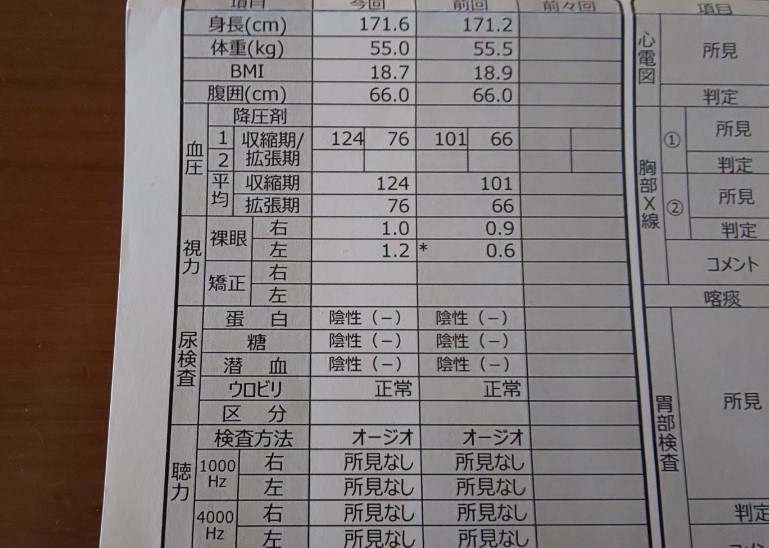 項目 今回 前回 前々回
身長(cm) 171.6 171.2
体重(kg) 55.0 55.5
BMI 18.7 18.9
腹囲(cm) 66.0 66.0
血圧
降圧剤
1 収縮期/拡張期 124 76 101 66
2
平均 収縮期 124 101
拡張期 76 66
視力
裸眼 右 1.0 0.9
左 1.2 * 0.6
矯正 右
左
尿検査
蛋白 陰性(−) 陰性(−)
糖 陰性(−) 陰性(−)
潜血 陰性(−) 陰性(−)
ウロビリ 正常 正常
区分
聴力
検査方法 オージオ オージオ
1000Hz 右 所見なし 所見なし
左 所見なし 所見なし
4000Hz 右 所見なし 所見なし
左 所見なし 所見なし
項目
心電図 所見
判定
胸部X線
① 所見
判定
② 所見
判定
コメント
喀痰
胃部検査 所見
判定